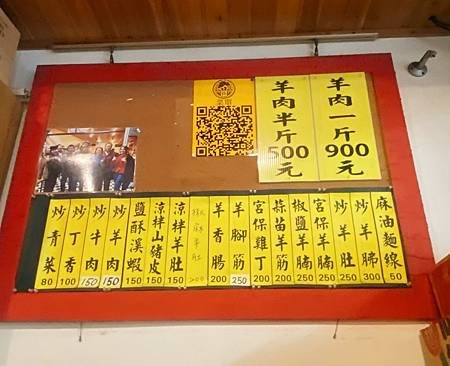 羊肉一斤900元
羊肉半斤500元
菜單
麻油麵線 50
炒羊肺 300
炒羊肚 250
宮保羊腩 250
椒鹽羊腩 250
蒜苗羊筋 200
宮保雞丁 200
羊腳筋 250
羊香腸 200
涼拌羊肚 150
涼拌山豬皮 150
鹽酥溪蝦 150
炒羊肉 150
炒牛肉 150
炒丁香 100
炒青菜 80